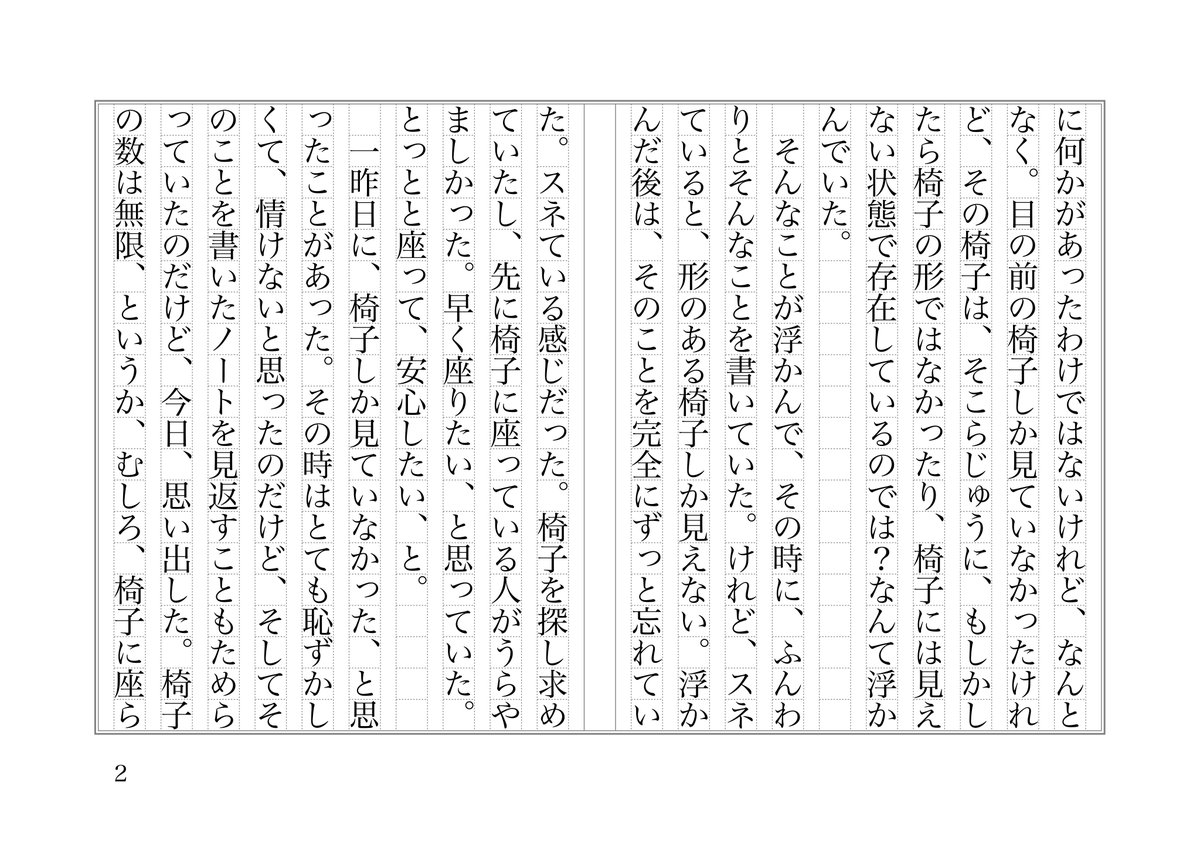 に何かがあったわけではないけれど、なんと
なく。目の前の椅子しか見ていなかったけれ
ど、その椅子は、そこらじゅうに、もしかし
たら椅子の形ではなかったり、椅子には見え
ない状態で存在しているのでは？なんて浮か
んでいた。
　そんなことが浮かんで、その時に、ふんわ
りとそんなことを書いていた。けれど、スネ
ていると、形のある椅子しか見えない。浮か
んだ後は、そのことを完全にずっと忘れてい
た。スネている感じだった。椅子を探し求め
ていたし、先に椅子に座っている人がうらや
ましかった。早く座りたい、と思っていた。
とっとと座って、安心したい、と。
　一昨日に、椅子しか見ていなかった、と思
ったことがあった。その時はとても恥ずかし
くて、情けないと思ったのだけど、そしてそ
のことを書いたノートを見返すこともためら
っていたのだけど、今日、思い出した。椅子
の数は無限、というか、むしろ、椅子に座ら
2